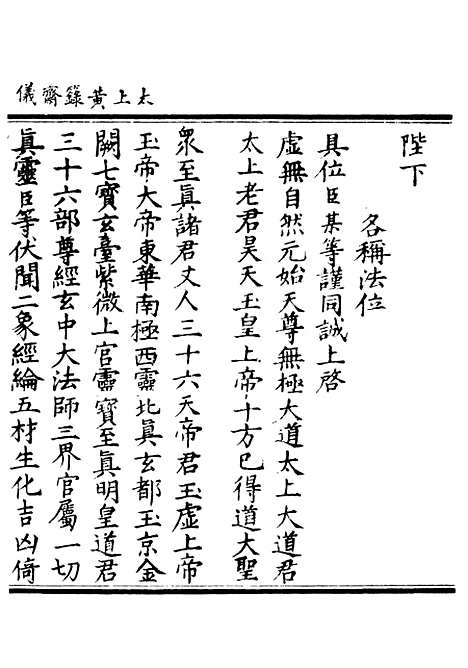 太上黄籙齋儀
陛下
各稱法位
具位臣某等謹同誠上啓
虛無自然元始天尊無極大道太上大道君
太上老君昊天玉皇上帝十方已得道大聖
衆至眞諸君丈人三十六天帝君玉虛上帝
玉帝大帝東華南極西靈北眞玄都玉京金
闕七寶玄臺紫微上官靈寶至眞明皇道君
三十六部尊經玄中大法師三界官屬一切
眞靈臣等伏聞二象經綸五材生化吉凶倚